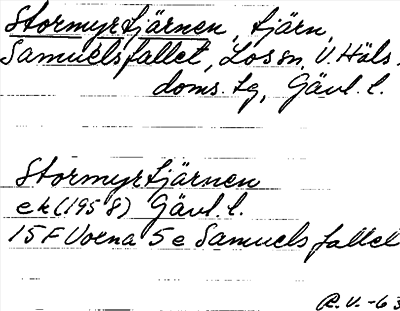 Stormyrtjärnen, tjärn,
Samuelsfallet, Los sn, V. Häls.
doms. tg, Gävl. l.
Stormyrtjärnen
ek (1958) Gävl. l.
15F Voxna 5e Samuelsfallet
R.V. -63